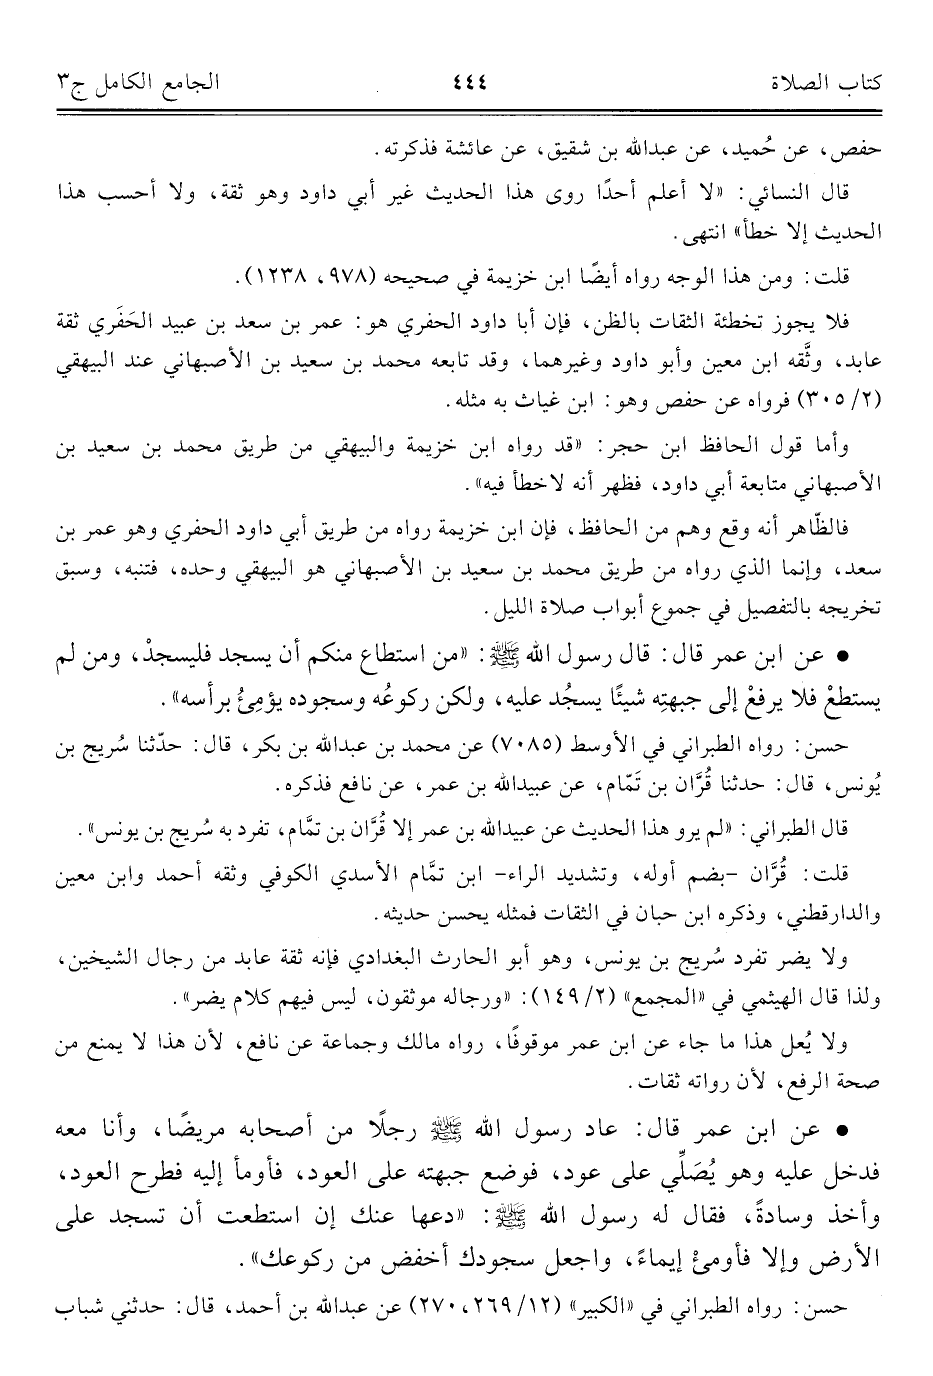 كتاب الصلاة ٤٤٤ الجامع الكامل ج٣
حفص، عن حُميد، عن عبدالله بن شقيق، عن عائشة فذكرته.
قال النسائي: «لا أعلم أحدًا روى هذا الحديث غير أبي داود وهو ثقة، ولا أحسب هذا
الحديث إلا خطأ» انتهى.
قلت: ومن هذا الوجه رواه أيضًا ابن خزيمة في صحيحه (٩٧٨، ١٢٣٨).
فلا يجوز تخطئة الثقات بالظن، فإن أبا داود الحفري هو: عمر بن سعد بن عبيد الحَفَري ثقة
عابد، وثَّقه ابن معين وأبو داود وغيرهما، وقد تابعه محمد بن سعيد بن الأصبهاني عند البيهقي
(٢/ ٣٠٥) فرواه عن حفص وهو: ابن غياث به مثله.
وأما قول الحافظ ابن حجر: «قد رواه ابن خزيمة والبيهقي من طريق محمد بن سعيد بن
الأصبهاني متابعة أبي داود، فظهر أنه لاخطأ فيه».
فالظّاهر أنه وقع وهم من الحافظ، فإن ابن خزيمة رواه من طريق أبي داود الحفري وهو عمر بن
سعد، وإنما الذي رواه من طريق محمد بن سعيد بن الأصبهاني هو البيهقي وحده، فتنبه، وسبق
تخريجه بالتفصيل في جموع أبواب صلاة الليل.
• عن ابن عمر قال: قال رسول الله ﷺ: «من استطاع منكم أن يسجد فليسجدْ، ومن لم
يستطعْ فلا يرفعْ إلى جبهتِه شيئًا يسجُد عليه، ولكن ركوعُه وسجوده يؤمِئُ برأسه».
حسن: رواه الطبراني في الأوسط (٧٠٨٥) عن محمد بن عبدالله بن بكر، قال: حدّثنا سُريج بن
يُونس، قال: حدثنا قُرَّان بن تَمّام، عن عبيدالله بن عمر، عن نافع فذكره.
قال الطبراني: «لم يرو هذا الحديث عن عبيدالله بن عمر إلا قُرَّان بن تمَّام، تفرد به سُريج بن يونس».
قلت: قُرَّان -بضم أوله، وتشديد الراء- ابن تمَّام الأسدي الكوفي وثقه أحمد وابن معين
والدارقطني، وذكره ابن حبان في الثقات فمثله يحسن حديثه.
ولا يضر تفرد سُريج بن يونس، وهو أبو الحارث البغدادي فإنه ثقة عابد من رجال الشيخين،
ولذا قال الهيثمي في «المجمع» (٢/ ١٤٩): «ورجاله موثقون، ليس فيهم كلام يضر».
ولا يُعل هذا ما جاء عن ابن عمر موقوفًا، رواه مالك وجماعة عن نافع، لأن هذا لا يمنع من
صحة الرفع، لأن رواته ثقات.
• عن ابن عمر قال: عاد رسول الله ﷺ رجلًا من أصحابه مريضًا، وأنا معه
فدخل عليه وهو يُصَلِّي على عود، فوضع جبهته على العود، فأومأ إليه فطرح العود،
وأخذ وسادةً، فقال له رسول الله ﷺ: «دعها عنك إن استطعت أن تسجد على
الأرض وإلا فأومئ إيماءً، واجعل سجودك أخفض من ركوعك».
حسن: رواه الطبراني في «الكبير» (١٢/ ٢٦٩، ٢٧٠) عن عبدالله بن أحمد، قال: حدثني شباب